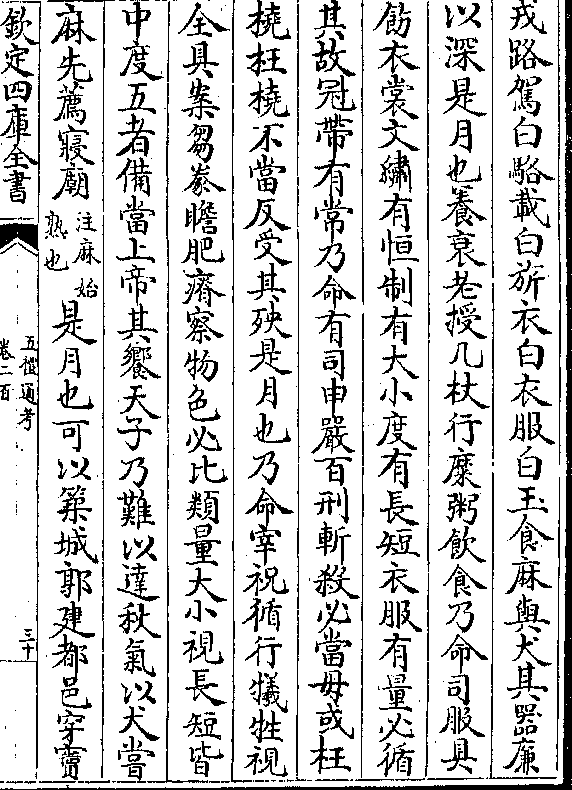 戎路駕白駱載白旂衣白衣服白玉食麻與犬其器廉
以深是月也養衰老授几杖行糜粥飲食乃命司服具
飭衣裳文繡有恒制有大小度有長短衣服有量必循
其故冠帶有常乃命有司申嚴百刑斬殺必當毋或枉
橈枉橈不當反受其殃是月也乃命宰祝循行犧牲視
全具案芻豢瞻肥瘠察物色必比類量大小視長短皆
中度五者備當上帝其饗天子乃難以達秋氣以犬嘗
麻先薦寢廟注麻始熟也是月也可以築城郭建都邑穿竇
欽定四庫全書
五禮通考
卷二百
三十